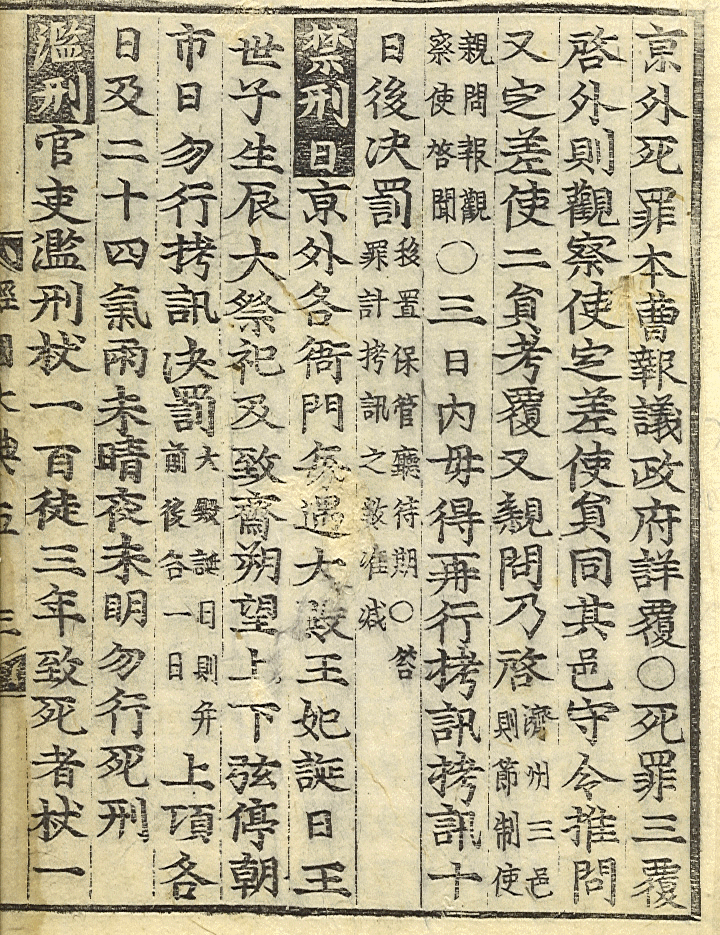 京外死罪本曹報議政府詳覆○死罪三覆
啓外則觀察使定差使員同其邑守令推問
又定差使二員考覆又親問乃啓濟州三邑則節制使
親問報觀察使啓聞○三日內毋得再行拷訊拷訊十
日後决罰移置保管藥待期○笞罪計拷訊之數准減
禁刑日京外各衙門每遇大殿王妃誕日王
世子生辰大祭祀及致齋朔望上下弦停朝
市日勿行拷訊决罰大殿誕日則幷前後各一日上項各
日及二十四氣雨未晴夜未明勿行死刑
濫刑官吏濫刑杖一百徒三年致死者杖一
經國大典五 三